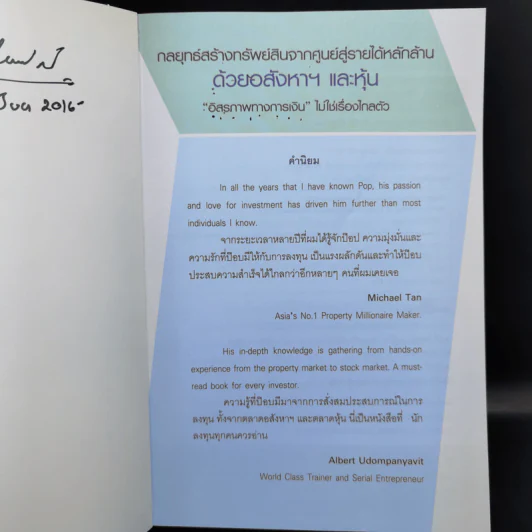 2016
กลยุทธ์สร้างทรัพย์สินจากศูนย์สู่รายได้หลักล้าน
ด้วยอสังหาฯ และหุ้น
"อิสรภาพทางการเงิน" ไม่ใช่เรื่องไกลตัว
คำนิยม
In all the years that I have known Pop, his passion
and love for investment has driven him further than most
individuals I know.
จากระยะเวลาหลายปีที่ผมได้รู้จักป๊อป ความมุ่งมั่นและ
ความรักที่ป๊อบมีให้กับการลงทุน เป็นแรงผลักดันและทำให้ป๊อบ
ประสบความสำเร็จได้ไกลกว่าอีกหลายๆ คนที่ผมเคยเจอ
Michael Tan
Asia's No.1 Property Millionaire Maker.
His in-depth knowledge is gathering from hands-on
experience from the property market to stock market. A must-
read book for every investor.
ความรู้ที่ป๊อบมีมาจากการสั่งสมประสบการณ์ในการ
ลงทุน ทั้งจากตลาดอสังหาฯ และตลาดหุ้น นี่เป็นหนังสือที่ นัก
ลงทุนทุกคนควรอ่าน
Albert Udompanyavit
World Class Trainer and Serial Entrepreneur